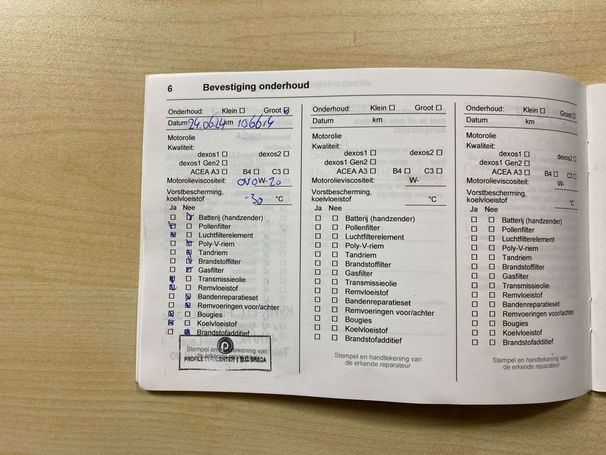 6 Bevestiging onderhoud
Onderhoud: Klein ☐ Groot ☑
Datum 24.06.24 km 106614
Motorolie
Kwaliteit:
dexos1 ☐ dexos2 ☐
dexos1 Gen2 ☐
ACEA A3 ☐ B4 ☐ C3 ☐
Motorolieviscositeit: 0W-20
Vorstbescherming,
koelvloeistof -30 °C
Ja Nee
Batterij (handzender)
Pollenfilter
Luchtfilterelement
Poly-V-riem
Tandriem
Brandstoffilter
Gasfilter
Transmissieolie
Remvloeistof
Bandenreparatieset
Remvoeringen voor/achter
Bougies
Koelvloeistof
Brandstofadditief
Stempel en handtekening van
de erkende reparateur
P
PROFILE TYRECENTER | B.C. BREDA
Onderhoud: Klein ☐ Groot ☐
Datum km
Motorolie
Kwaliteit:
dexos1 ☐ dexos2 ☐
dexos1 Gen2 ☐
ACEA A3 ☐ B4 ☐ C3 ☐
Motorolieviscositeit: W-
Vorstbescherming,
koelvloeistof °C
Ja Nee
Batterij (handzender)
Pollenfilter
Luchtfilterelement
Poly-V-riem
Tandriem
Brandstoffilter
Gasfilter
Transmissieolie
Remvloeistof
Bandenreparatieset
Remvoeringen voor/achter
Bougies
Koelvloeistof
Brandstofadditief
Stempel en handtekening van
de erkende reparateur
Onderhoud: Klein ☐ Groot ☐
Datum km
Motorolie
Kwaliteit:
dexos1 ☐ dexos2 ☐
dexos1 Gen2 ☐
ACEA A3 ☐ B4 ☐ C3 ☐
Motorolieviscositeit: W-
Vorstbescherming,
koelvloeistof °C
Ja Nee
Batterij (handzender)
Pollenfilter
Luchtfilterelement
Poly-V-riem
Tandriem
Brandstoffilter
Gasfilter
Transmissieolie
Remvloeistof
Bandenreparatieset
Remvoeringen voor/achter
Bougies
Koelvloeistof
Brandstofadditief
Stempel en handtekening van
de erkende reparateur